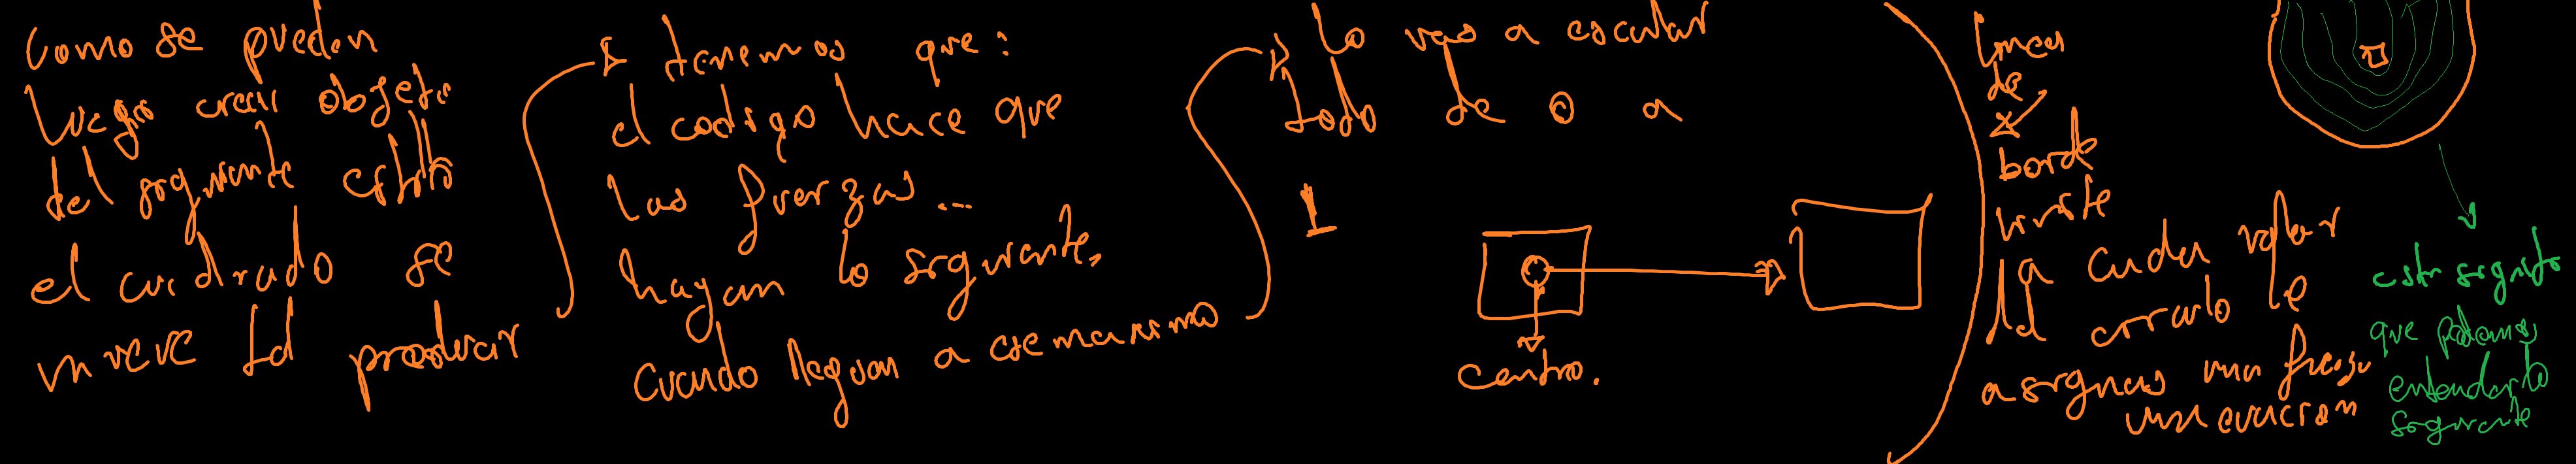 Como se pueden
luego crear objeto
del siguiente estilo
el cuadrado se
mueve Id presionar
tenemos que:
el codigo hace que
las fuerzas ...
hagan lo siguiente.
Cuando llegan a ese maximo
Lo vas a escalar
todo de 0 a
1
centro.
lineas
de
borde
a cada valor
del circulo le
asignas una
una ecuacion
esto significa
que podamos
entender lo
siguiente